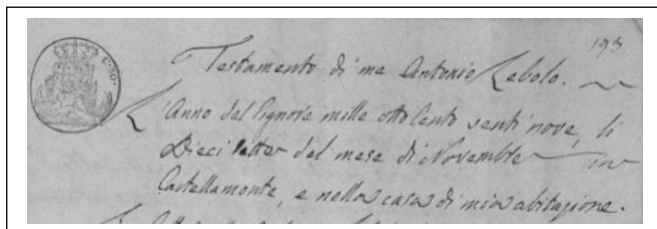 193.
C. 50.
Testamento di me Antonio Lebolo.
L'Anno del Signore mille otto Cento venti nove, li
Dieci sette del mese di Novembre in
Castellamonte, e nella casa di mia abitazione.